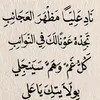 نَادِ عَلِيًّا مَظْهَرَ الْعَجَائِبِ
تَجِدْهُ عَوْنًا لَكَ فِي النَّوَائِبِ
كُلُّ هَمٍّ وَغَمٍّ سَيَنْجَلِي
بِوِلَايَتِكَ يَا عَلِيُّ